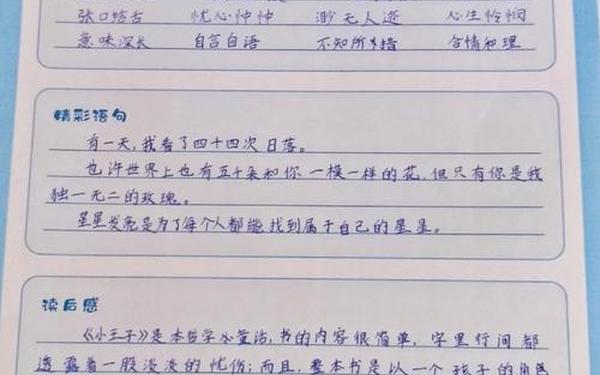 张口结舌 忧心忡忡 渺无人迹 心生怜悯
意味深长 自言自语 不知所措 合情和理
精彩语句
有一天,我看了四十四次日落。
也许世界上也有五千朵和你一模一样的花,但只有你是我
独一无二的玫瑰。
星星发亮是为了每个人都能找到属于自己的星星。
读后感
《小王子》是本哲学小童话,书的内容很简单,字里行间都
透露着一股淡淡的忧伤;而且,整本书是以一个孩子的角度